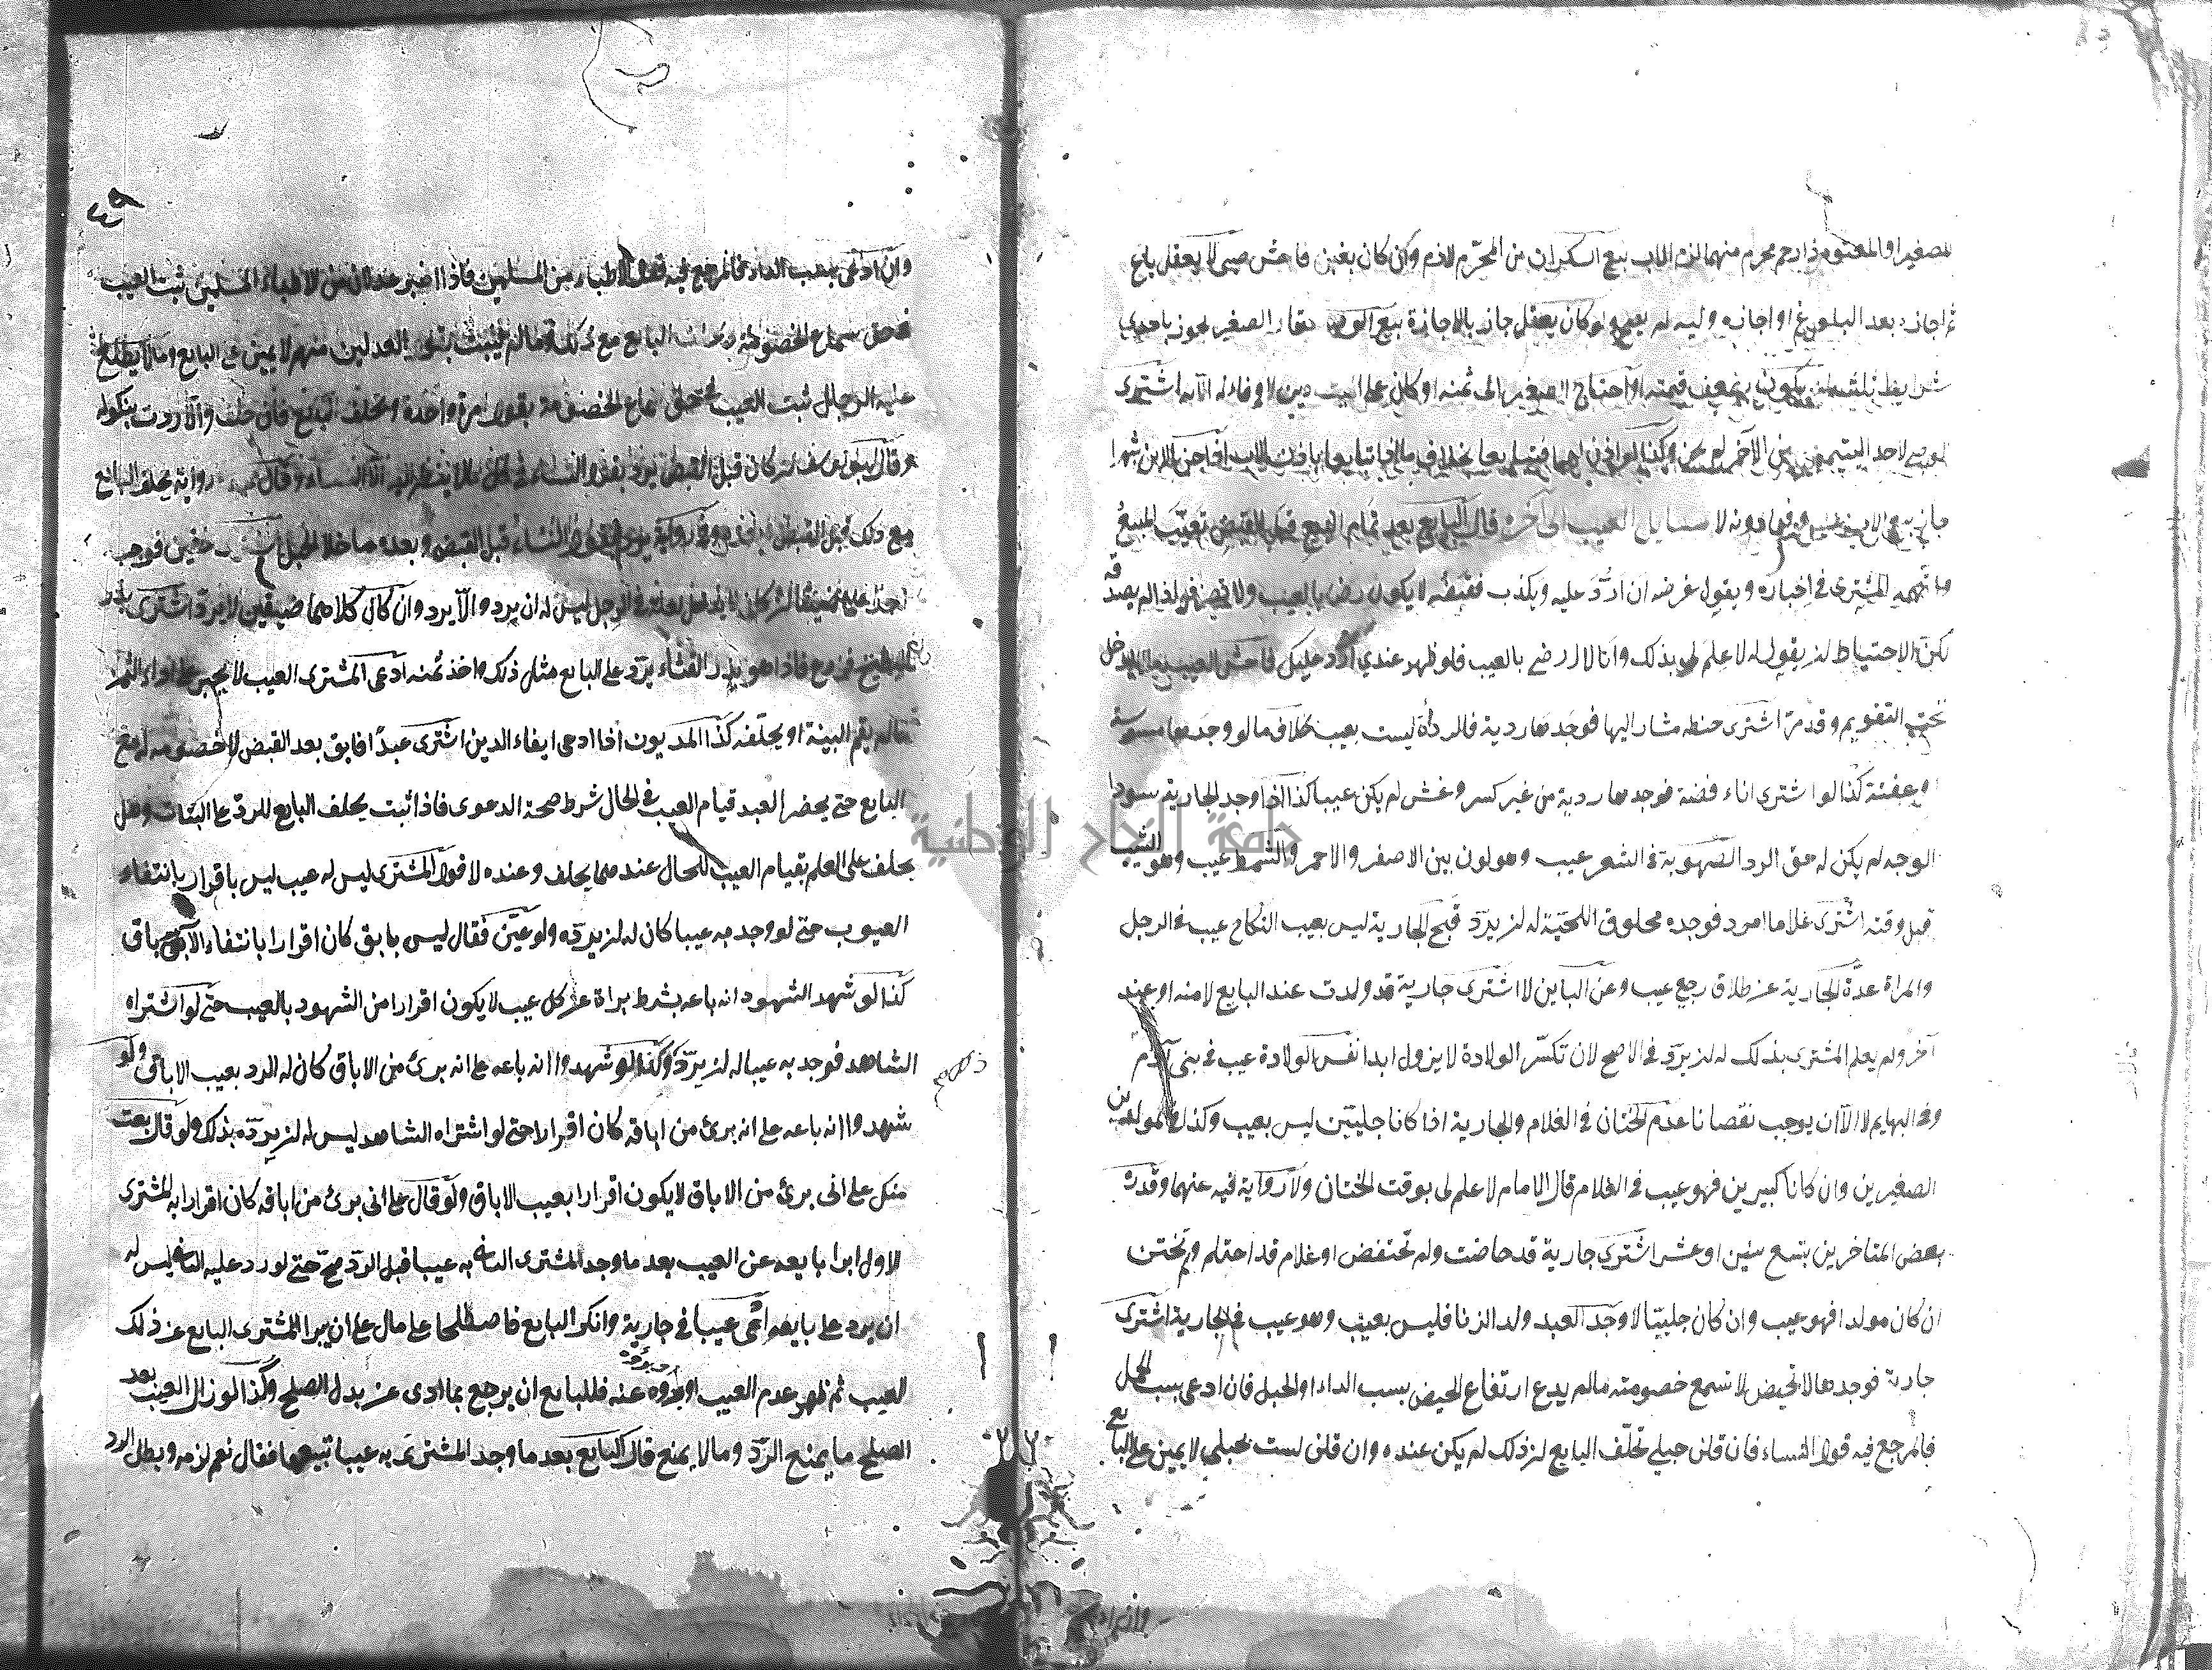 للصغير او المعتوه ذا رحم محرم منهما لزم الاب بيع السكران من المحرم لازم وان كان بغبن فاحش صبي لا يعقل باع
ثم اجازه بعد البلوغ او اجازه وليه لم يصح ولو كان يعقل جاز بالاجازة بيع الوصي عقار الصغير يجوز باحدي
شرايط ثلثة ان يكون بضعف قيمته او احتاج الصغير الى ثمنه او كان على الميت دين لا وفاء له الا به اشترى
الوصي لاحد اليتيمين من الآخر لم يجز وكذا لو اذن لهما فتبايعا بخلاف ما اذا تبايعا باذن الاب اذا جن الابن شهرا
جاز بيع الاب عليه وفيما دونه لا مسايل العيب الى آخره قال البايع بعد تمام البيع قبل القبض تعيّب المبيع
فاتهمه المشترى في اخباره ويقول غرضه ان اردّ عليه ويكذب فقبضه لا يكون رضى بالعيب ولا تصرفه اذا لم يصدقه
لكن الاحتياط ان يقول له لا علم لي بذلك وانا لا ارضى بالعيب فلو ظهر عندي ارد عليك فاحش العيب ما لا يدخل
تحت التقويم وقد مرّ اشترى حنطة مشار اليها فوجدها ردية فالردأة ليست بعيب بخلاف ما لو وجدها مسوسة
او عفنة كذا لو اشترى اناء فضة فوجدها ردية من غير كسر وغش لم يكن عيبا كذا اذا وجد الجارية سودا
الوجه لم يكن له حق الرد الصهوبة في الشعر عيب وهو لون بين الاصفر والاحمر والشمط عيب وهو الشيب
قبل وقته اشترى غلاما امرد فوجده محلوق اللحية له ان يردّ قبح الجارية ليس بعيب النكاح عيب في الرجل
والمراة عدّة الجارية عن طلاق رجعي عيب وعن الباين لا اشترى جارية قد ولدت عند البايع لا منه او عند
آخر ولم يعلم المشترى بذلك له ان يردّ في الاصح لان تكسّر الولادة لا يزول ابدا نفس الولادة عيب في بنى آدم
وفي البهايم لا الا ان يوجب نقصانا عدم الختان في الغلام والجارية اذا كانا جليبين ليس بعيب وكذلك المولدين
الصغيرين وان كانا كبيرين فهو عيب في الغلام قال الامام لا علم لي بوقت الختان ولا رواية فيه عنهما وقدره
بعض المتاخرين بتسع سنين او عشر اشترى جارية قد حاضت ولم تختفض او غلام قد احتلم ولم يختتن
ان كان مولدا فهو عيب وان كان جليبا لا وجد العبد ولد الزنا فليس بعيب وهو عيب في الجارية اشترى
جارية فوجدها لا تحيض لا تسمع خصومته ما لم يدع ارتفاع الحيض بسبب الداء او الحبل فان ادعى بسبب الحبل
فالمرجع فيه قول النساء فان قلن حبلى تحلّف البايع ان ذلك لم يكن عنده وان قلن ليست بحبلى لا يمين على البايع
وان ادعى
٤٩
وان ادعى بسبب الداء فالمرجع فيه قول الاطباء من المسلمين فاذا اخبر عدلان من الاطباء المسلمين ثبت العيب
في حق سماع الخصومة البايع مع ذلك وما لم يثبت بقول العدلين منهم لا يمين على البايع وما لا يطلع
عليه الرجال ثبت العيب في حق سماع الخصومة بقول امرة واحدة وتحلف البايع فان حلف والا ردت بنكوله
وقال ابو يوسف ان كان قبل القبض يرد بقول النساء في كل ما لا ينظر اليه الا النساء وقال محمد رواية يحلف البايع
مع ذلك قبل القبض وبعده وفي رواية يرد بقول النساء قبل القبض وبعده ما خلا الحبل اشترى خفين فوجد
احد ضيقا ان كان في الرجل ليس له ان يرد والا يرد وان كان كلاهما ضيقين لا يرد اشترى بذر
البطيخ فزرع فاذا هو بذر القثاء يردّ على البايع مثل ذلك واخذ ثمنه ادعى المشترى العيب لا يجبر على اداء الثمن
ما لم يقم البينة او يحلفه كذا المديون اذا ادعى ايفاء الدين اشترى عبدًا فابق بعد القبض لا خصومه له مع
البايع حتى يحضر العبد قيام العيب في الحال شرط صحة الدعوى فاذا ثبت يحلف البايع للردّ على البتات وهل
يحلف على العلم بقيام العيب للحال عندهما يحلف وعنده لا قول المشترى ليس له عيب ليس باقرار بانتفاء
العيوب حتى لو وجد به عيبا كان له ان يردّه ولو عيّن فقال ليس بابق كان اقرارا بانتفاء الاباق
كذا لو شهد الشهود انه باعه بشرط براة عن كل عيب لا يكون اقرارا من الشهود بالعيب حتى لو اشتراه
الشاهد فوجد به عيبا له ان يردّ وكذا لو شهدوا انه باعه على انه برئ من الاباق كان له الرد بعيب الاباق ولو
شهدوا انه باعه على انه برئ من اباقه كان اقرارا حتى لو اشتراه الشاهد ليس له ان يردّه بذلك ولو قال بعت
منك على انى برئ من الاباق لا يكون اقرارا بعيب الاباق ولو قال على انى برئ من اباقه كان اقرارا به المشترى
الاول ابرا بايعه عن العيب بعد ما وجد المشترى الثانى به عيبا قبل الردّ صحّ حتى لو رد عليه الثانى ليس له
ان يرد على بايعه ادّعى عيبا في جارية وانكر البايع فاصطلحا على مال على ان يبرا المشترى البايع عن ذلك
العيب ثم ظهر عدم العيب او بروه عنه فللبايع ان يرجع بما ادى عن بدل الصلح وكذا لو زال العيب بعد
الصلح ما يمنع الردّ وما لا يمنع قال البايع بعد ما وجد المشترى به عيبا تبيعها فقال نعم لزمه وبطل الرد
جامعة النجاح الوطنية